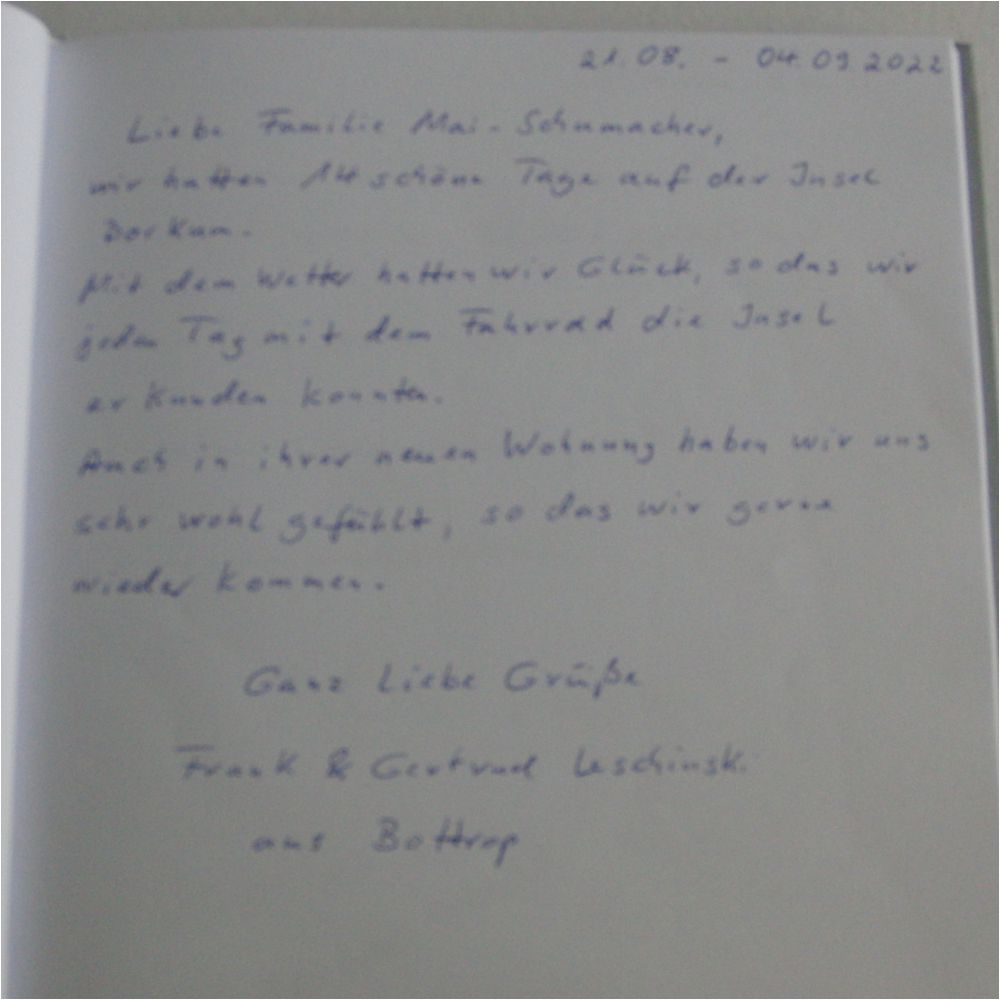 21.08. - 04.09.2022
Liebe Familie Mai-Schumacher,
wir hatten 14 schöne Tage auf der Insel
Borkum.
Mit dem Wetter hatten wir Glück, so das wir
jeden Tag mit dem Fahrrad die Insel
erkunden konnten.
Auch in ihrer neuen Wohnung haben wir uns
sehr wohl gefühlt, so das wir gerne
wieder kommen.
Ganz Liebe Grüße
Frank & Gertrud Leschinski
aus Bottrop